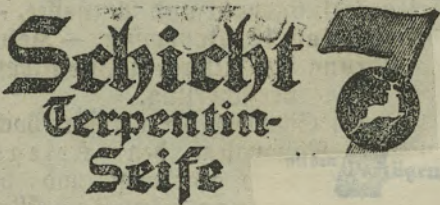 Schicht
Terpentin-
Seife